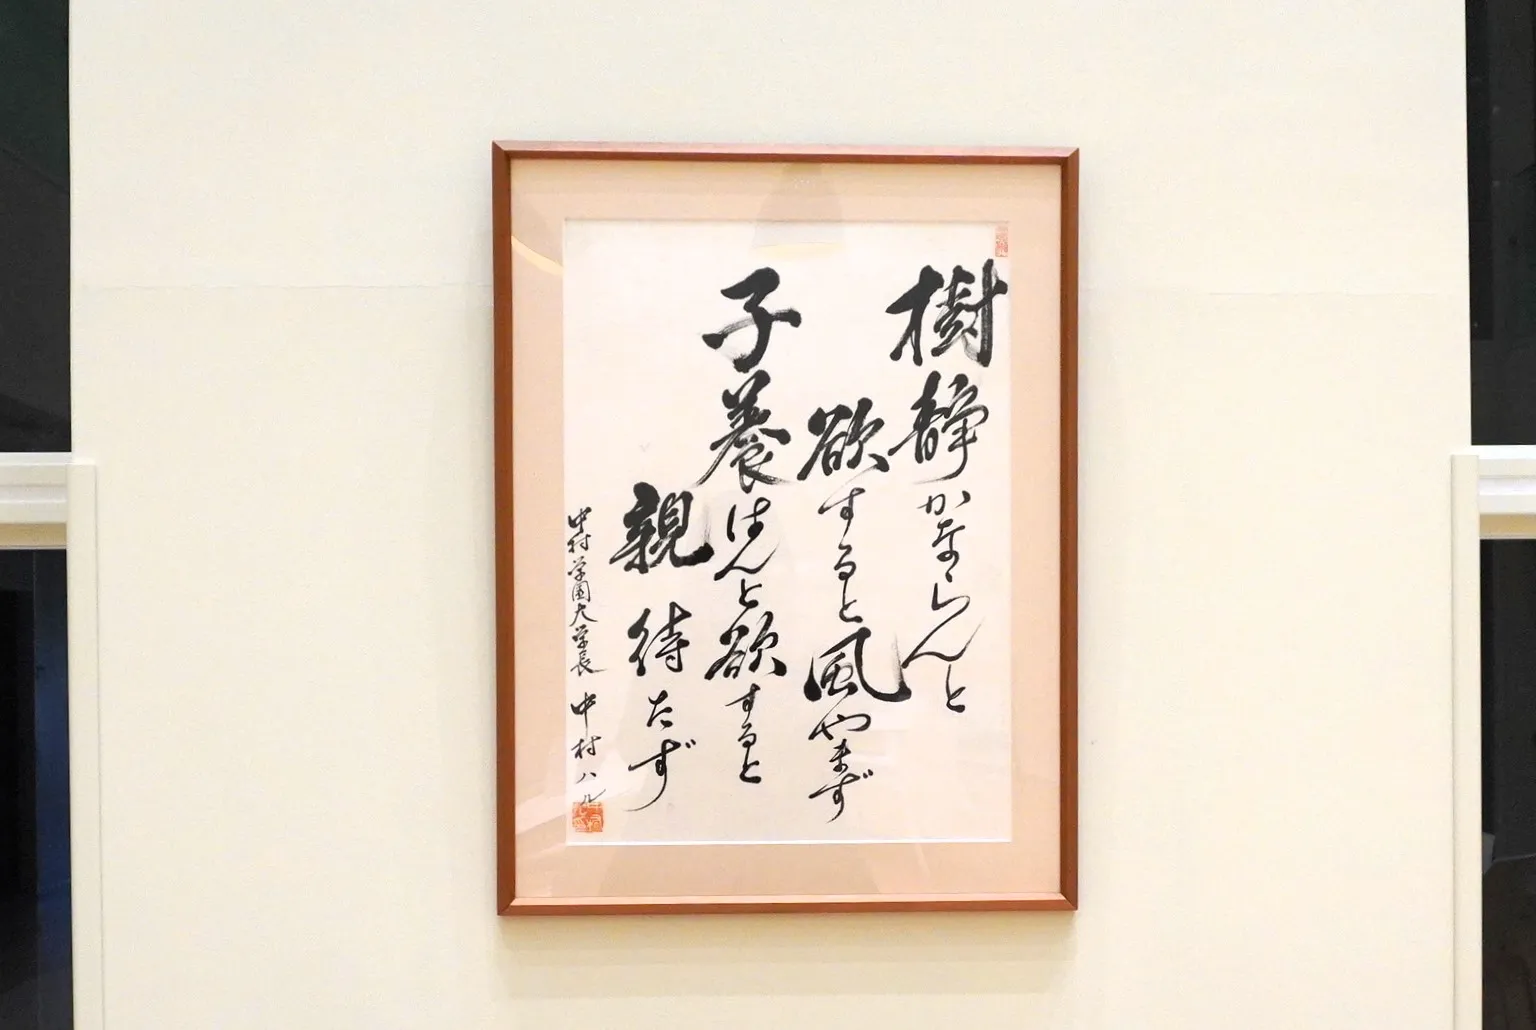 樹静かならんと
欲すると風やまず
子養はんと欲すると
親待たず
中村学園大学長 中村ハル